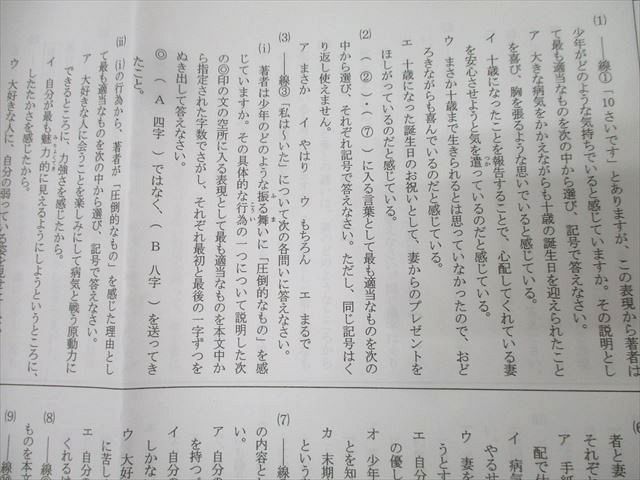 (1) ――線①「10さいです」とありますが、この表現から著者は
少年がどのような気持ちでいると感じていますか。その説明とし
て最も適当なものを次の中から選び、記号で答えなさい。
ア 大きな病気をかかえながらも十歳の誕生日を迎えられたこと
を喜び、胸を張るような思いでいると感じている。
イ 十歳になったことを報告することで、心配してくれている妻
を安心させようと気を遣っているのだと感じている。
ウ まさか十歳まで生きられるとは思っていなかったので、おど
ろきながらも喜んでいるのだと感じている。
エ 十歳になった誕生日のお祝いとして、妻からのプレゼントを
ほしがっているのだと感じている。
(2) ( ② )・( ⑦ )に入る言葉として最も適当なものを次の
中から選び、それぞれ記号で答えなさい。ただし、同じ記号はく
り返し使えません。
ア まさか イ やはり ウ もちろん エ まるで
(3) ――線③「私は〜いた」について次の各問いに答えなさい。
(i) 著者は少年のどのような振る舞いに「圧倒的なもの」を感
じていますか。その具体的な行為の一つについて説明した次
の◎印の文の空所に入る表現として最も適当なものを本文中か
ら指定された字数でさがし、それぞれ最初と最後の一字ずつを
ぬき出して答えなさい。
◎ ( A 四字 )ではなく、( B 八字 )を送ってき
たこと。
(ii) (i)の行為から、著者が「圧倒的なもの」を感じた理由とし
て最も適当なものを次の中から選び、記号で答えなさい。
ア 大好きな人に会うことを楽しみにして病気と戦う原動力に
できるところに、力強さを感じたから。
イ 自分が最も魅力的に見えるようにしようというところに、
したたかさを感じたから。
ウ 大好きな人に、自分の弱っている姿を見せ
者と妻
それぞ
ア 手紙
配で仕
イ 病気
やるせ
ウ 妻を
うとす
エ 自分
の優し
オ 少年
とを知
カ 末期
という
(7) ――線
の内容と
い。
ア 自分の
を持つ
イ 自分の
しかな
ウ 大好
に苦し
エ 自分の
くれるは
(8) ――線⑧
ものを本文
(9) ――線⑩